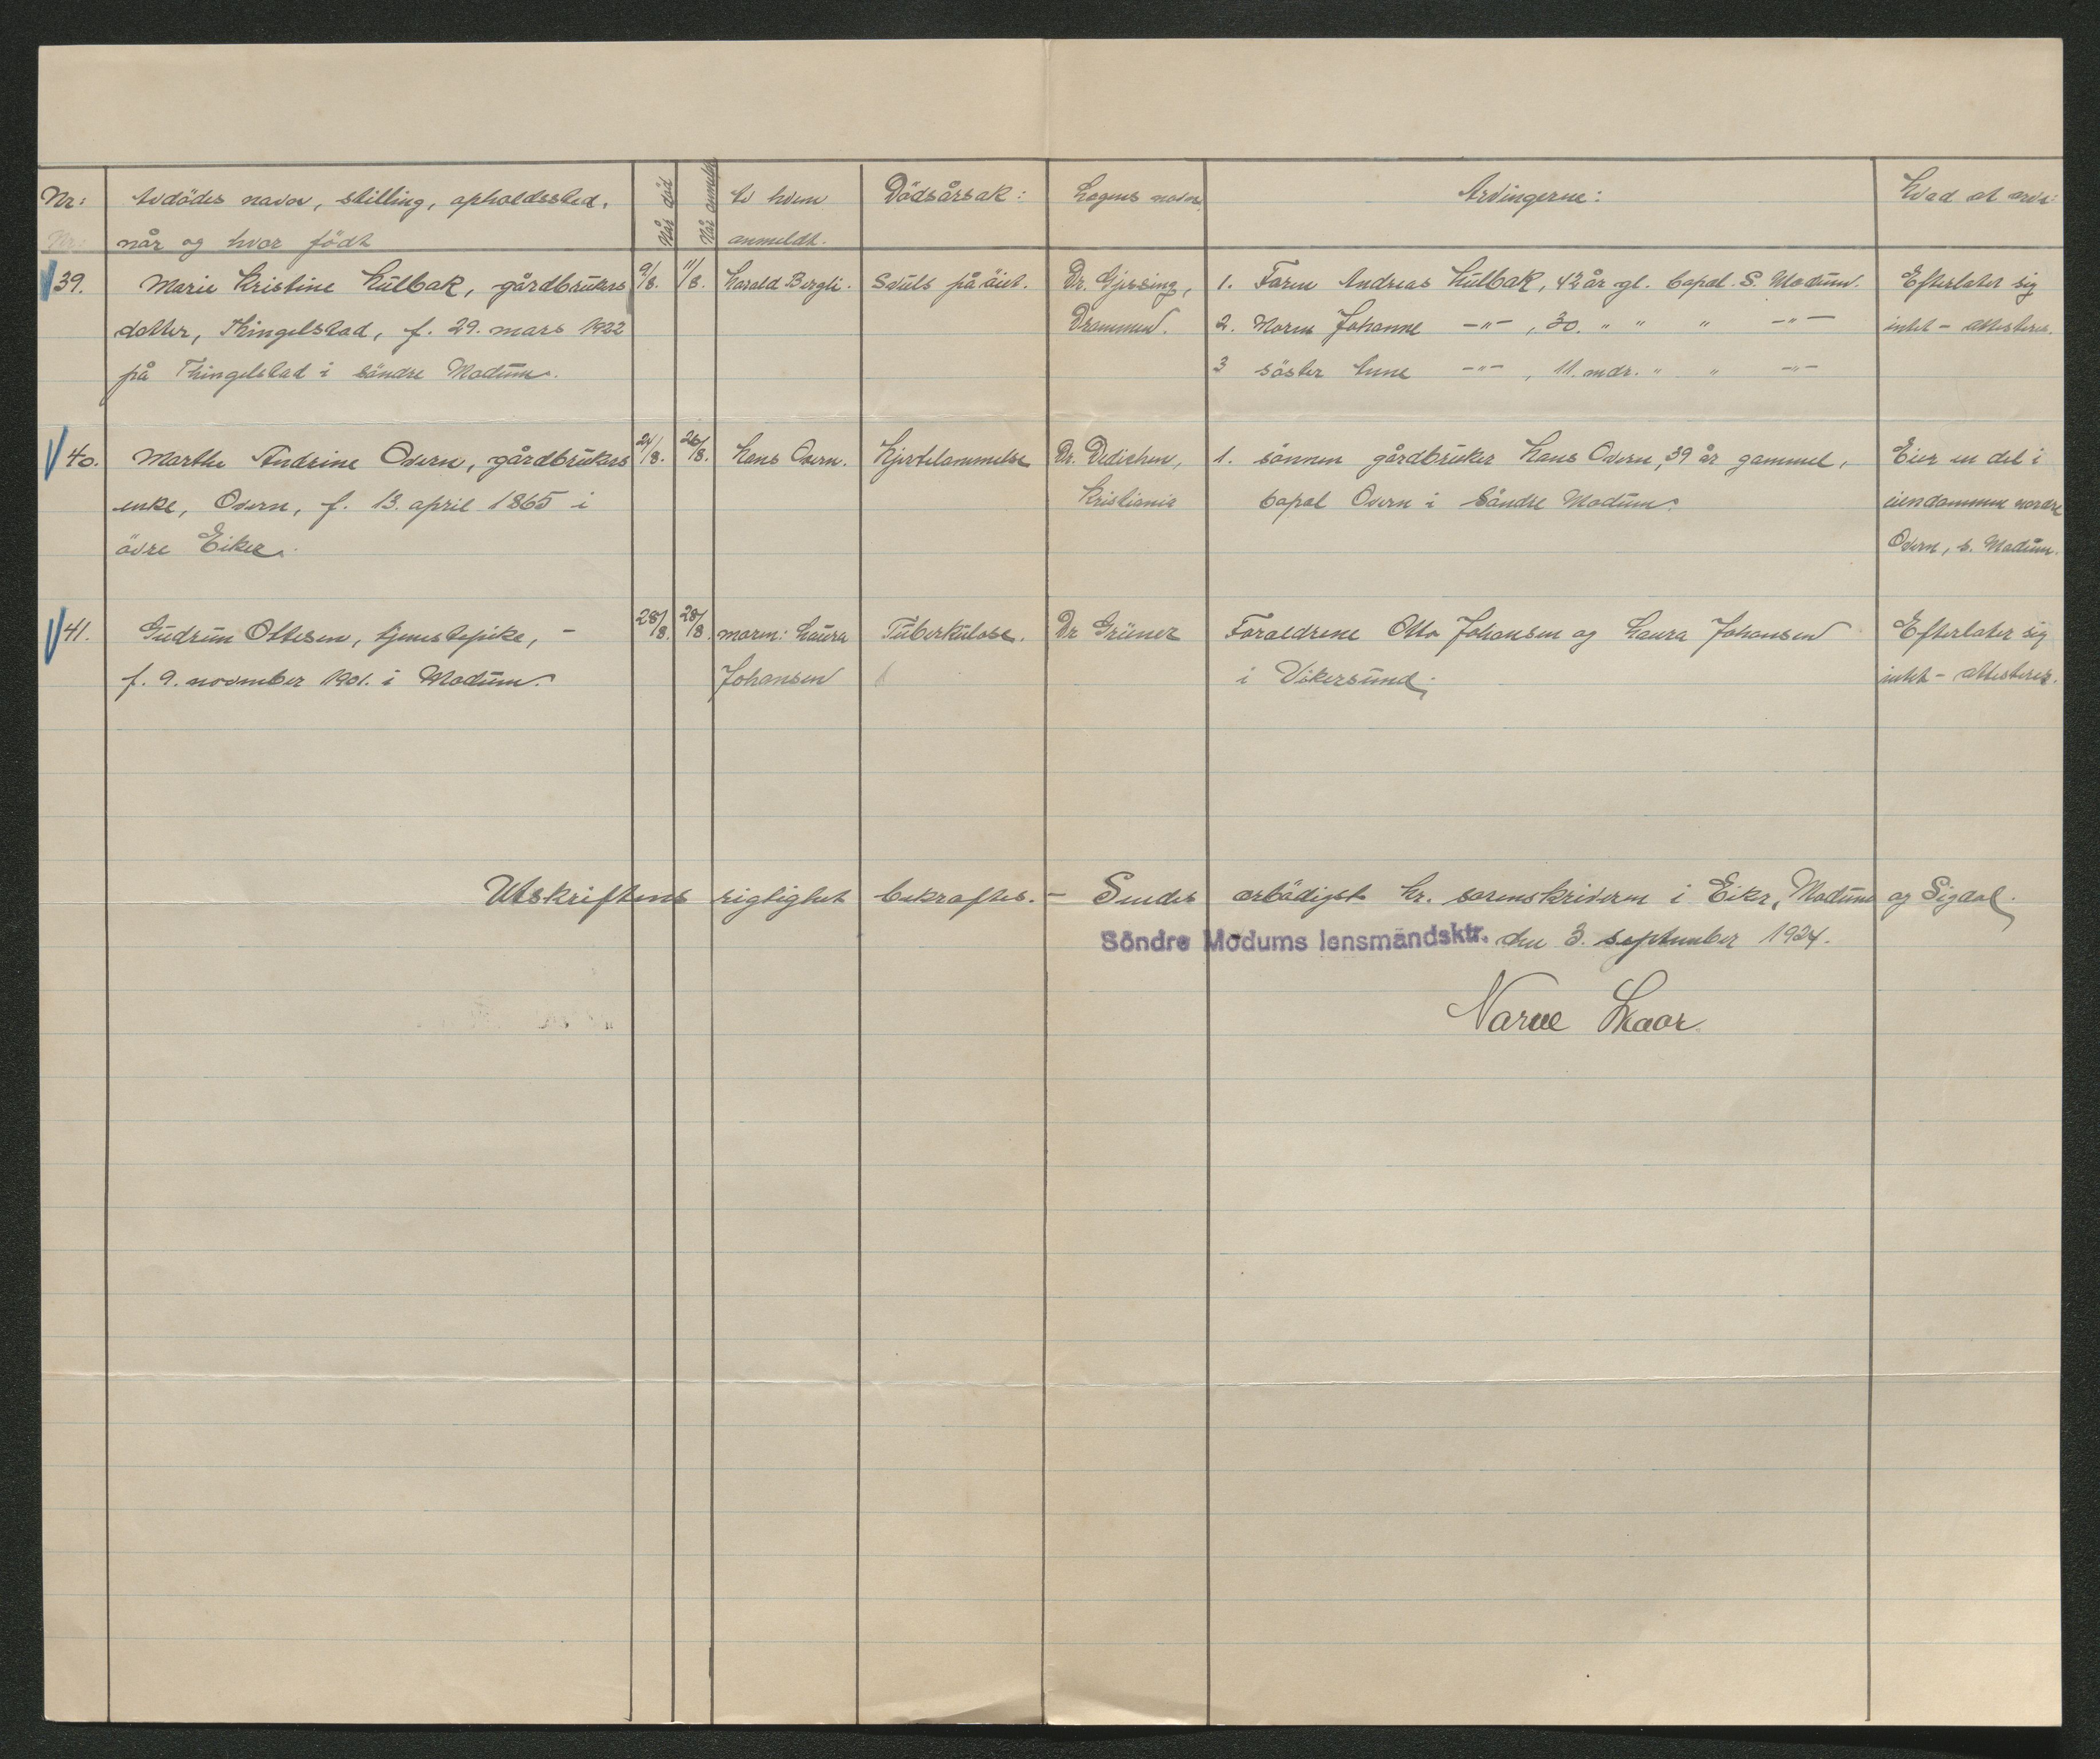 Nr: Avdödes navn, stilling, opholdssted, Når död Når anmeldt Av hvem Dödsårsak: Lægens navn Arvingerne: Hvad at arve:
Nr: når og hvor födt anmeldt.
39. Marie Kristine Hulbak, gårdbrukers 9/8. 11/8. Harald Bergli. Svuls på öiet. Dr. Gjessing, 1. Faren Andreas Hulbak, 42 år gl. bopæl S. Modum. Efterlater sig
datter, Thingelstad, f. 29. mars 1922 Drammen. 2. Moren Johanne -"- , 30. " " " -"- intet - attesteres.
på Thingelstad i söndre Modum. 3 söster Lune -"- , 11. mdr. " " -"-
40. Marthe Andrine Overn, gårdbrukers 24/8. 26/8. Hans Overn. Hjertelammelse Dr. Dedichen, 1. sönnen gårdbruker Hans Overn, 39 år gammel, Eier en del i
enke, Overn, f. 13. april 1865 i Kristiania bopæl Overn i Söndre Modum. eiendommen nordre
övre Eiker. Overn, s. Modum.
41. Gudrun Ottesen, tjenestepike, - 28/8. 28/8. moren: Laura Tuberkulose. Dr Grüner Forældrene Otto Johansen og Laura Johansen Efterlater sig
f. 9. november 1901. i Modum. Johansen i Vikersund. intet - attesteres.
Utskriftens rigtighet bekræftes. - Sendes ærbödigst hr. sorenskriveren i Eiker, Modum og Sigdal.
Söndre Modums lensmandsktr. den 3. september 1924.
Narve Skaar